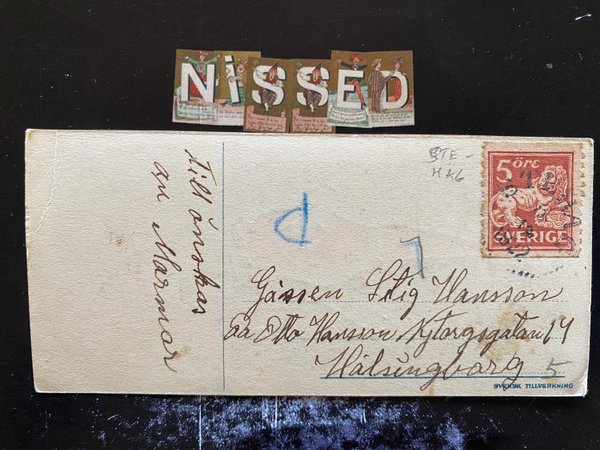 NiSSED
STE-
HAG
5 ÖRE
SVERIGE
1922
tillönskas
av Marmor
Gossen Stig Hansson
Otto Hansson Nytorgsgatan 14
Hälsingborg 5
SVENSK TILLVERKNING